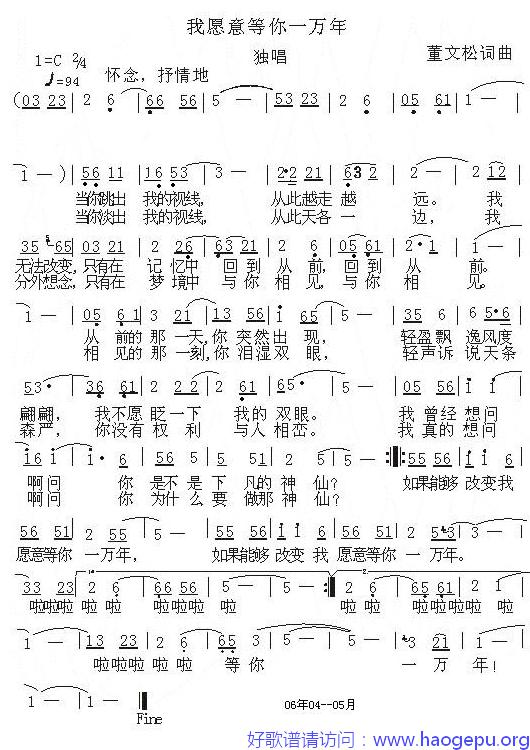 我愿意等你一万年
1=C 2/4 独唱 董文松词曲
♩=94 怀念，抒情地
(03 23 | 2 6 | 66 56 | 5 — | 23 53 | 2 6 | 05 61 | 1 — |
1 — ) | 56 11 | 16 53 | 3 — | 2·2 21 | 6 3 2 | 2 — | 2 12 |
当你跳出 我的视线， 从此越走 越 远。 我
当你淡出 我的视线， 从此天各 一 边， 我
35 65 | 03 21 | 2 26 | 65 5 | 1 6 | 2 — | 05 61 | 2·1 | 1 — |
无法改变，只有在 记 忆中 回 到 从 前，回 到 从 前。
分外想念，只有在 梦 境中 与 你 相 见，与 你 相 见。
1 — | 05 61 | 3 21 | 35 1 | 65 13 | 5 — | 5 — | 05 56 | 6 5·6 |
从 前的 那 一天，你 突然出 现， 轻盈飘 逸风度
相 见的 那 一刻，你 泪湿双 眼， 轻声诉 说天条
53· | 3 — | 36 61 | 2 22 | 2 2 6 | 5 — | 5 — | 05 56 |
翩翩， 我不愿 眨一下 我的 双眼。 我 曾经 想问
森严， 你没有 权 利 与人 相峦。 我 真的 想问
16 1 | 1· 6 | 5 6 | 1 2 | 5 — | 5 — | 55 56 | 1 1 6 |
啊问 你 是不 是下 凡的 神 仙？ 如果能够 改变我
啊问 你 为什 么要 做那 神 仙？
56 51 | 2 55 | 5 — | 55 56 | 1 1 6 | 56 51 | 2 5·3 | 2 — |
愿意等你 一万年， 如果能够 改变 我 愿意等你 一万年。
33 23 | 2 6 | 66 56 | 5 — | 5 — | 2 6 | 65 61 | 2 1 | 1 — |
啦啦啦啦 啦 啦 啦啦啦啦 啦 啦 啦 啦啦啦啦 啦
1 — | 13 23 | 2 6 | 65 3 | 5 — | 5 — | 3 21 | 1 — |
啦啦啦啦 啦 啦 等 你 一 万 年！
1 — | 1 — ‖
Fine
06年04--05月
好歌谱请访问：www.haogepu.org